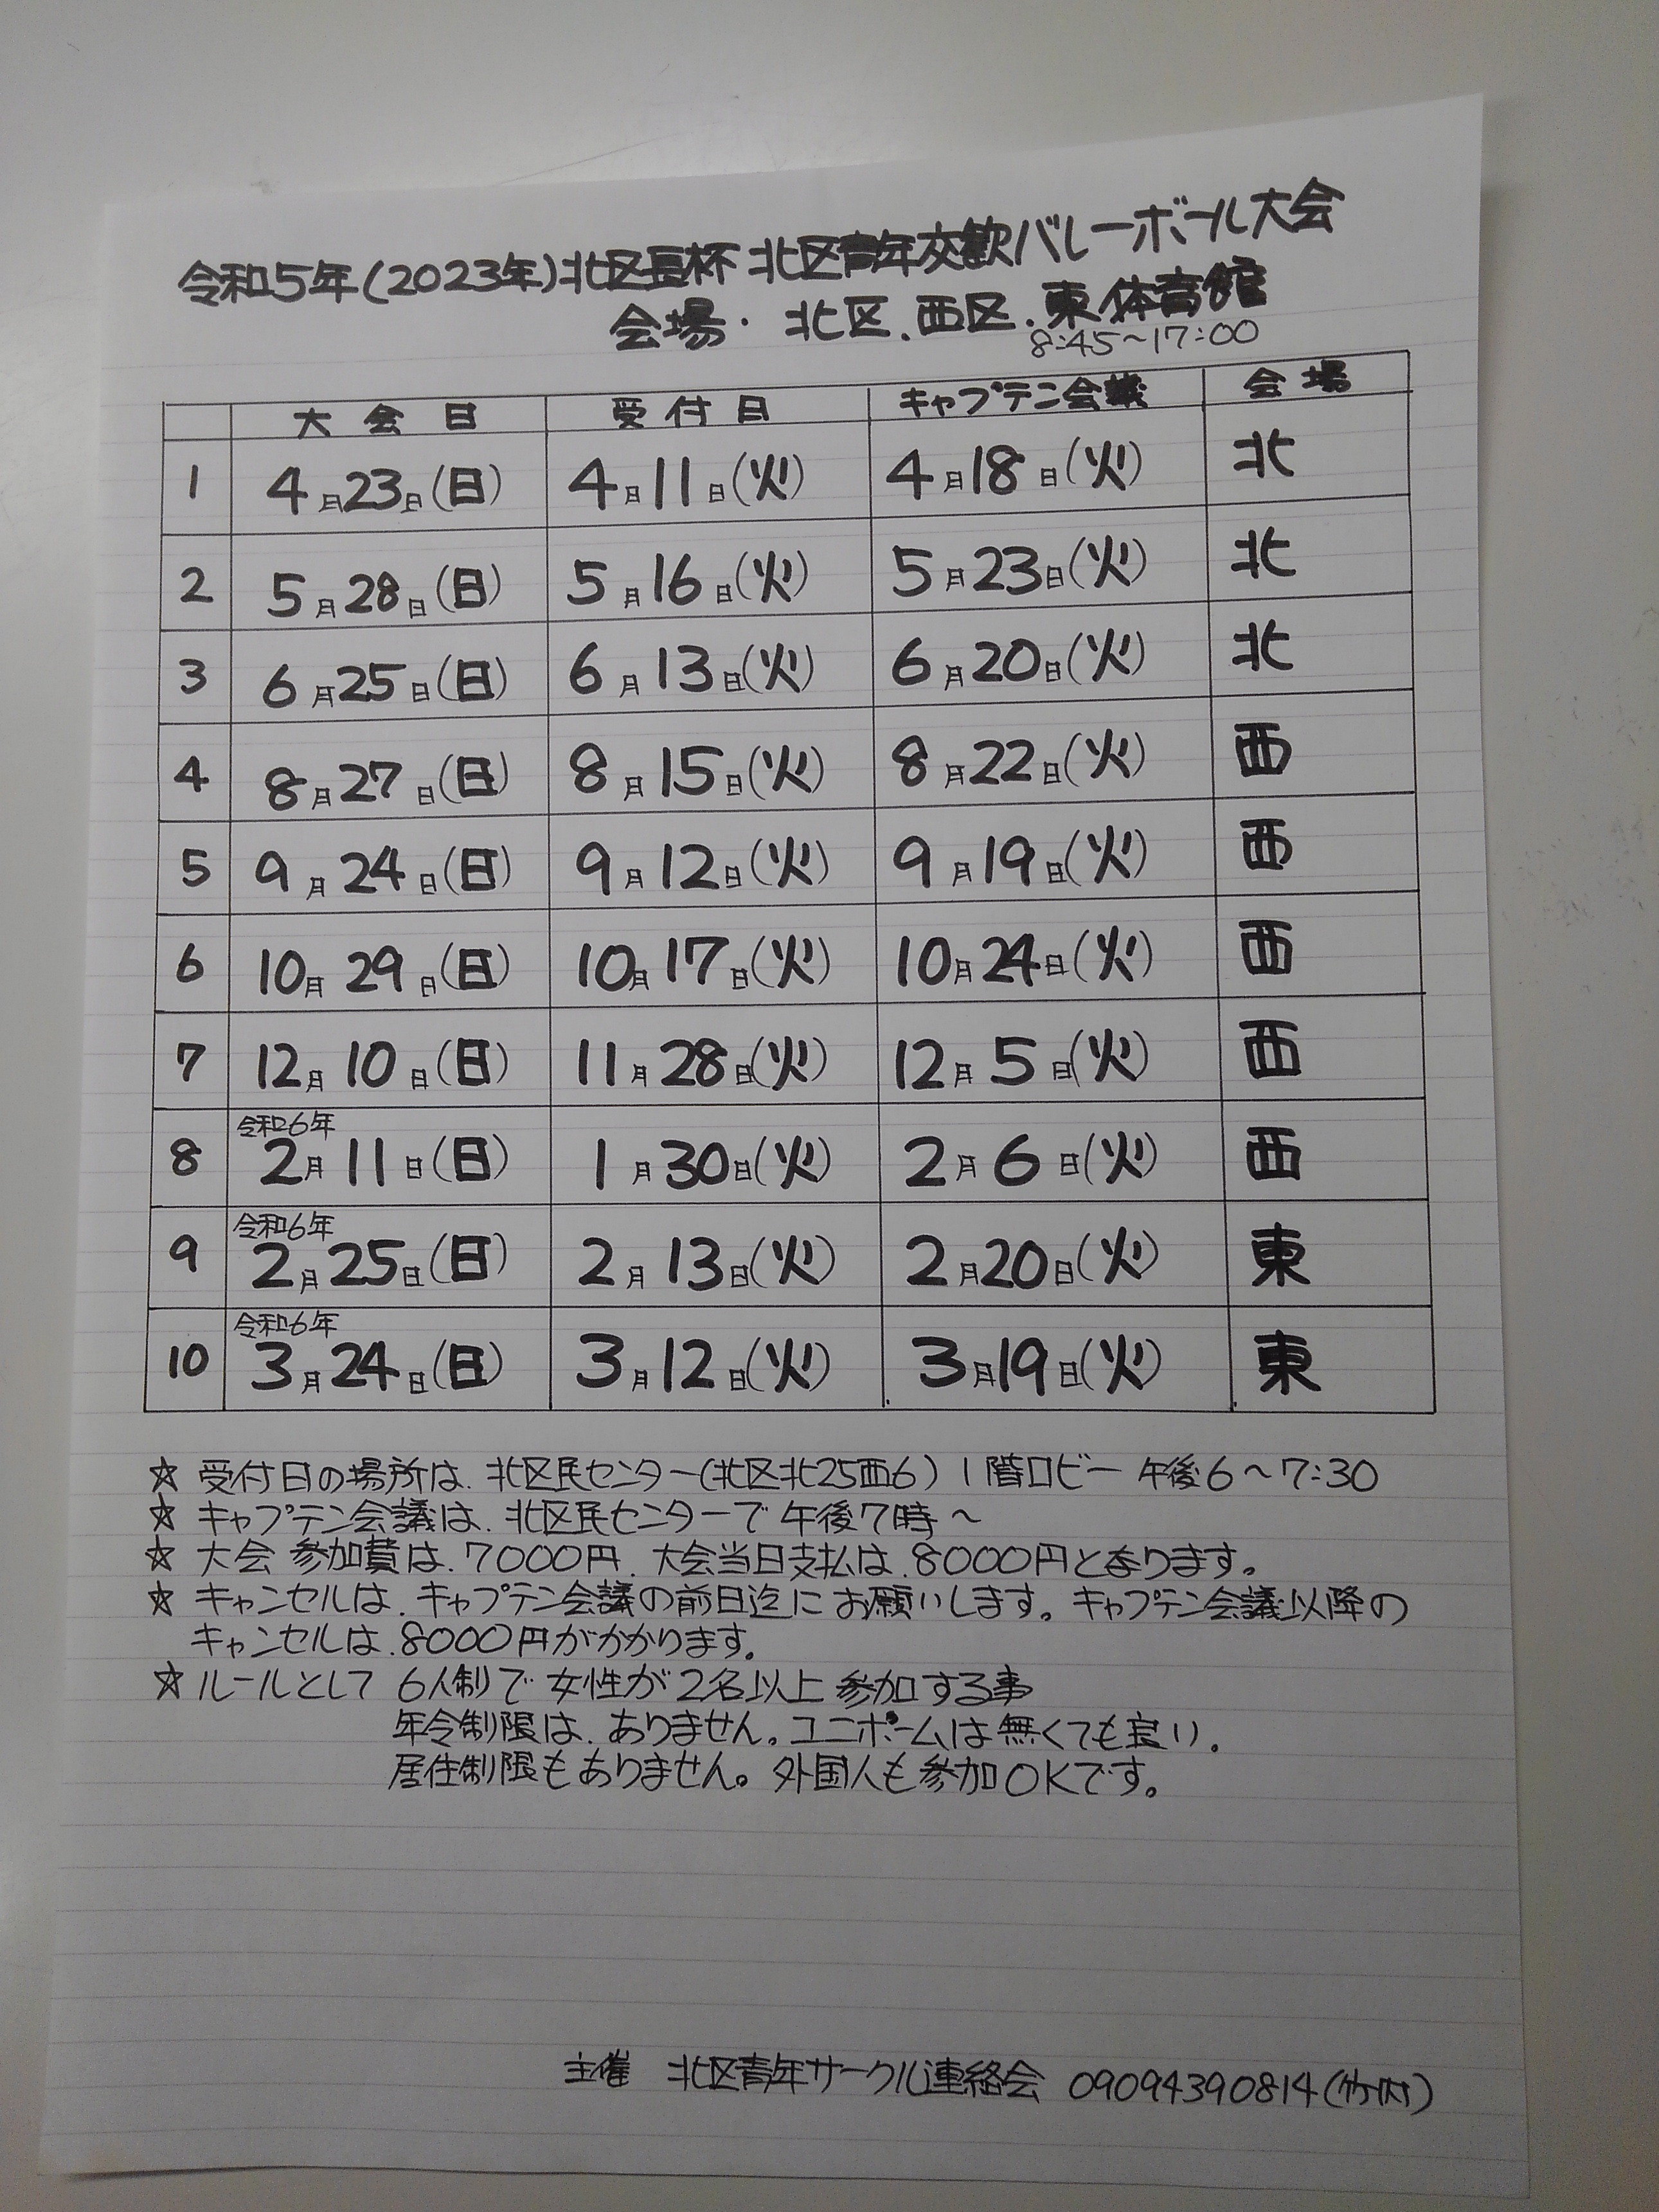 令和5年(2023年)北区長杯 北区青年交歓バレーボール大会
会場・北区.西区.東体育館
8:45~17:00
大会日 受付日 キャプテン会議 会場
1 4月23日(日) 4月11日(火) 4月18日(火) 北
2 5月28日(日) 5月16日(火) 5月23日(火) 北
3 6月25日(日) 6月13日(火) 6月20日(火) 北
4 8月27日(日) 8月15日(火) 8月22日(火) 西
5 9月24日(日) 9月12日(火) 9月19日(火) 西
6 10月29日(日) 10月17日(火) 10月24日(火) 西
7 12月10日(日) 11月28日(火) 12月5日(火) 西
8 令和6年 2月11日(日) 1月30日(火) 2月6日(火) 西
9 令和6年 2月25日(日) 2月13日(火) 2月20日(火) 東
10 令和6年 3月24日(日) 3月12日(火) 3月19日(火) 東
☆ 受付日の場所は.北区民センター(北区北25西6) 1階ロビー 午後6~7:30
☆ キャプテン会議は.北区民センターで 午後7時~
☆ 大会 参加費は.7000円.大会当日支払は.8000円となります。
☆ キャンセルは.キャプテン会議の前日迄に お願いします。キャプテン会議以降の
キャンセルは.8000円がかかります。
☆ ルールとして 6人制で 女性が 2名以上 参加する事
年令制限は.ありません。ユニホームは無くても良い.
居住制限もありません。外国人も参加OKです。
主催 北区青年サークル連絡会 09094390814(竹内)